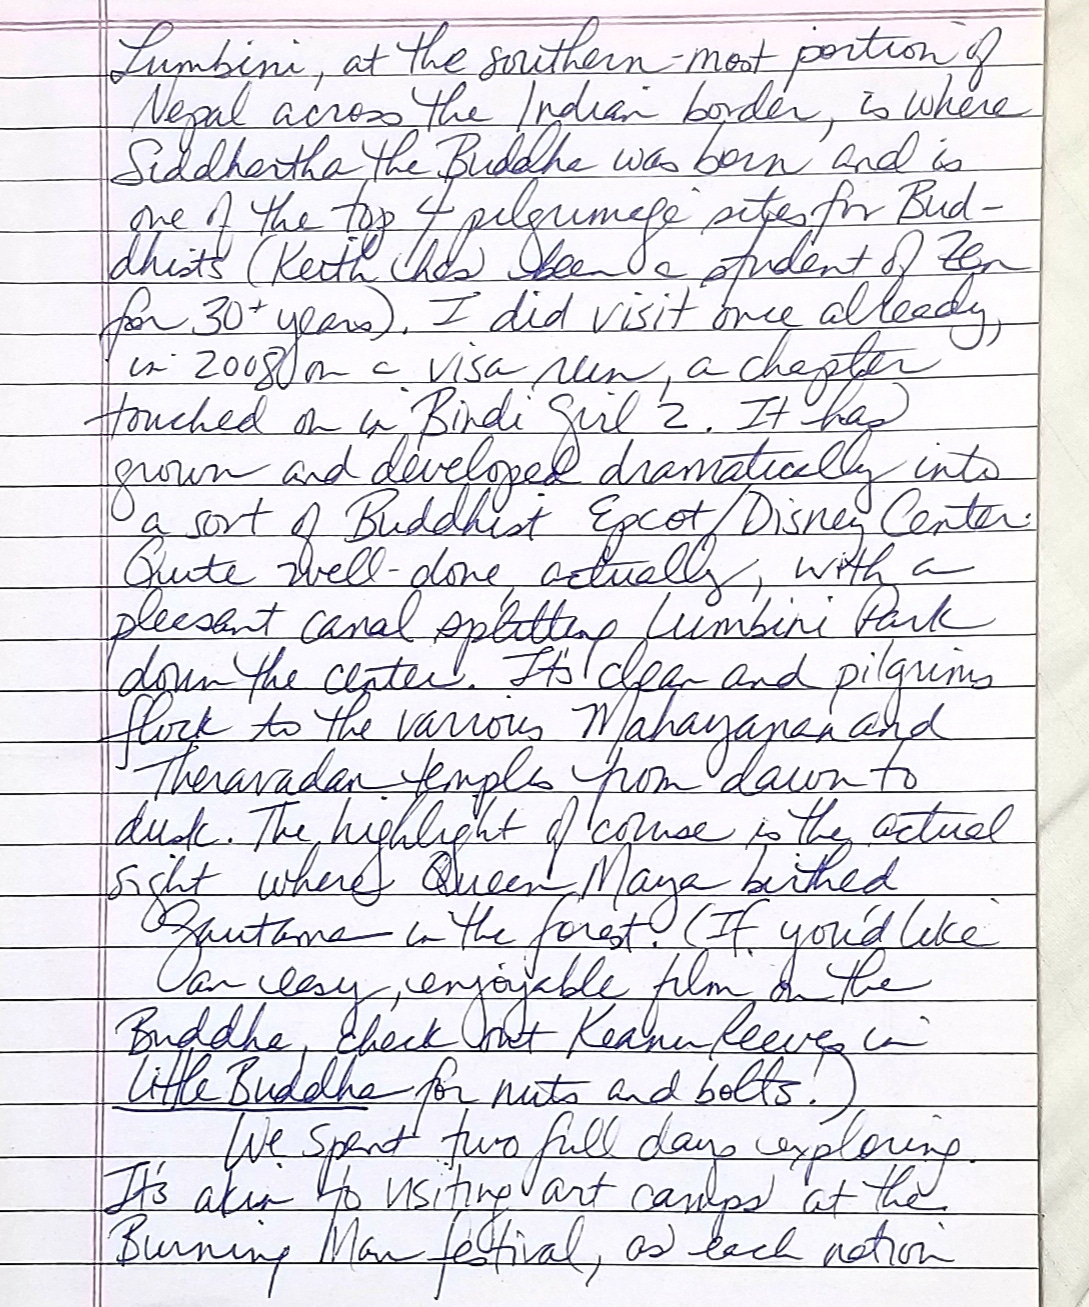 Lumbini, at the southern-most portion of
Nepal across the Indian border, is where
Siddhartha the Buddha was born and is
one of the top 4 pilgrimage sites for Bud-
dhists (Keith has been a student of Zen
for 30+ years). I did visit once already,
in 2008 on a visa run, a chapter
touched on in Bindi Girl 2. It has
grown and developed dramatically into
a sort of Buddhist Epcot/Disney Center.
Quite well-done, actually, with a
pleasant canal splitting Lumbini Park
down the center. It's clean and pilgrims
flock to the various Mahayanan and
Theravadan temples from dawn to
dusk. The highlight of course is the actual
sight where Queen Maya birthed
Gautama in the forest. (If you'd like
an easy, enjoyable film on the
Buddha, check out Keanu Reeves in
Little Buddha for nuts and bolts.)
We spent two full days exploring.
It's akin to visiting art camps at the
Burning Man festival, as each nation